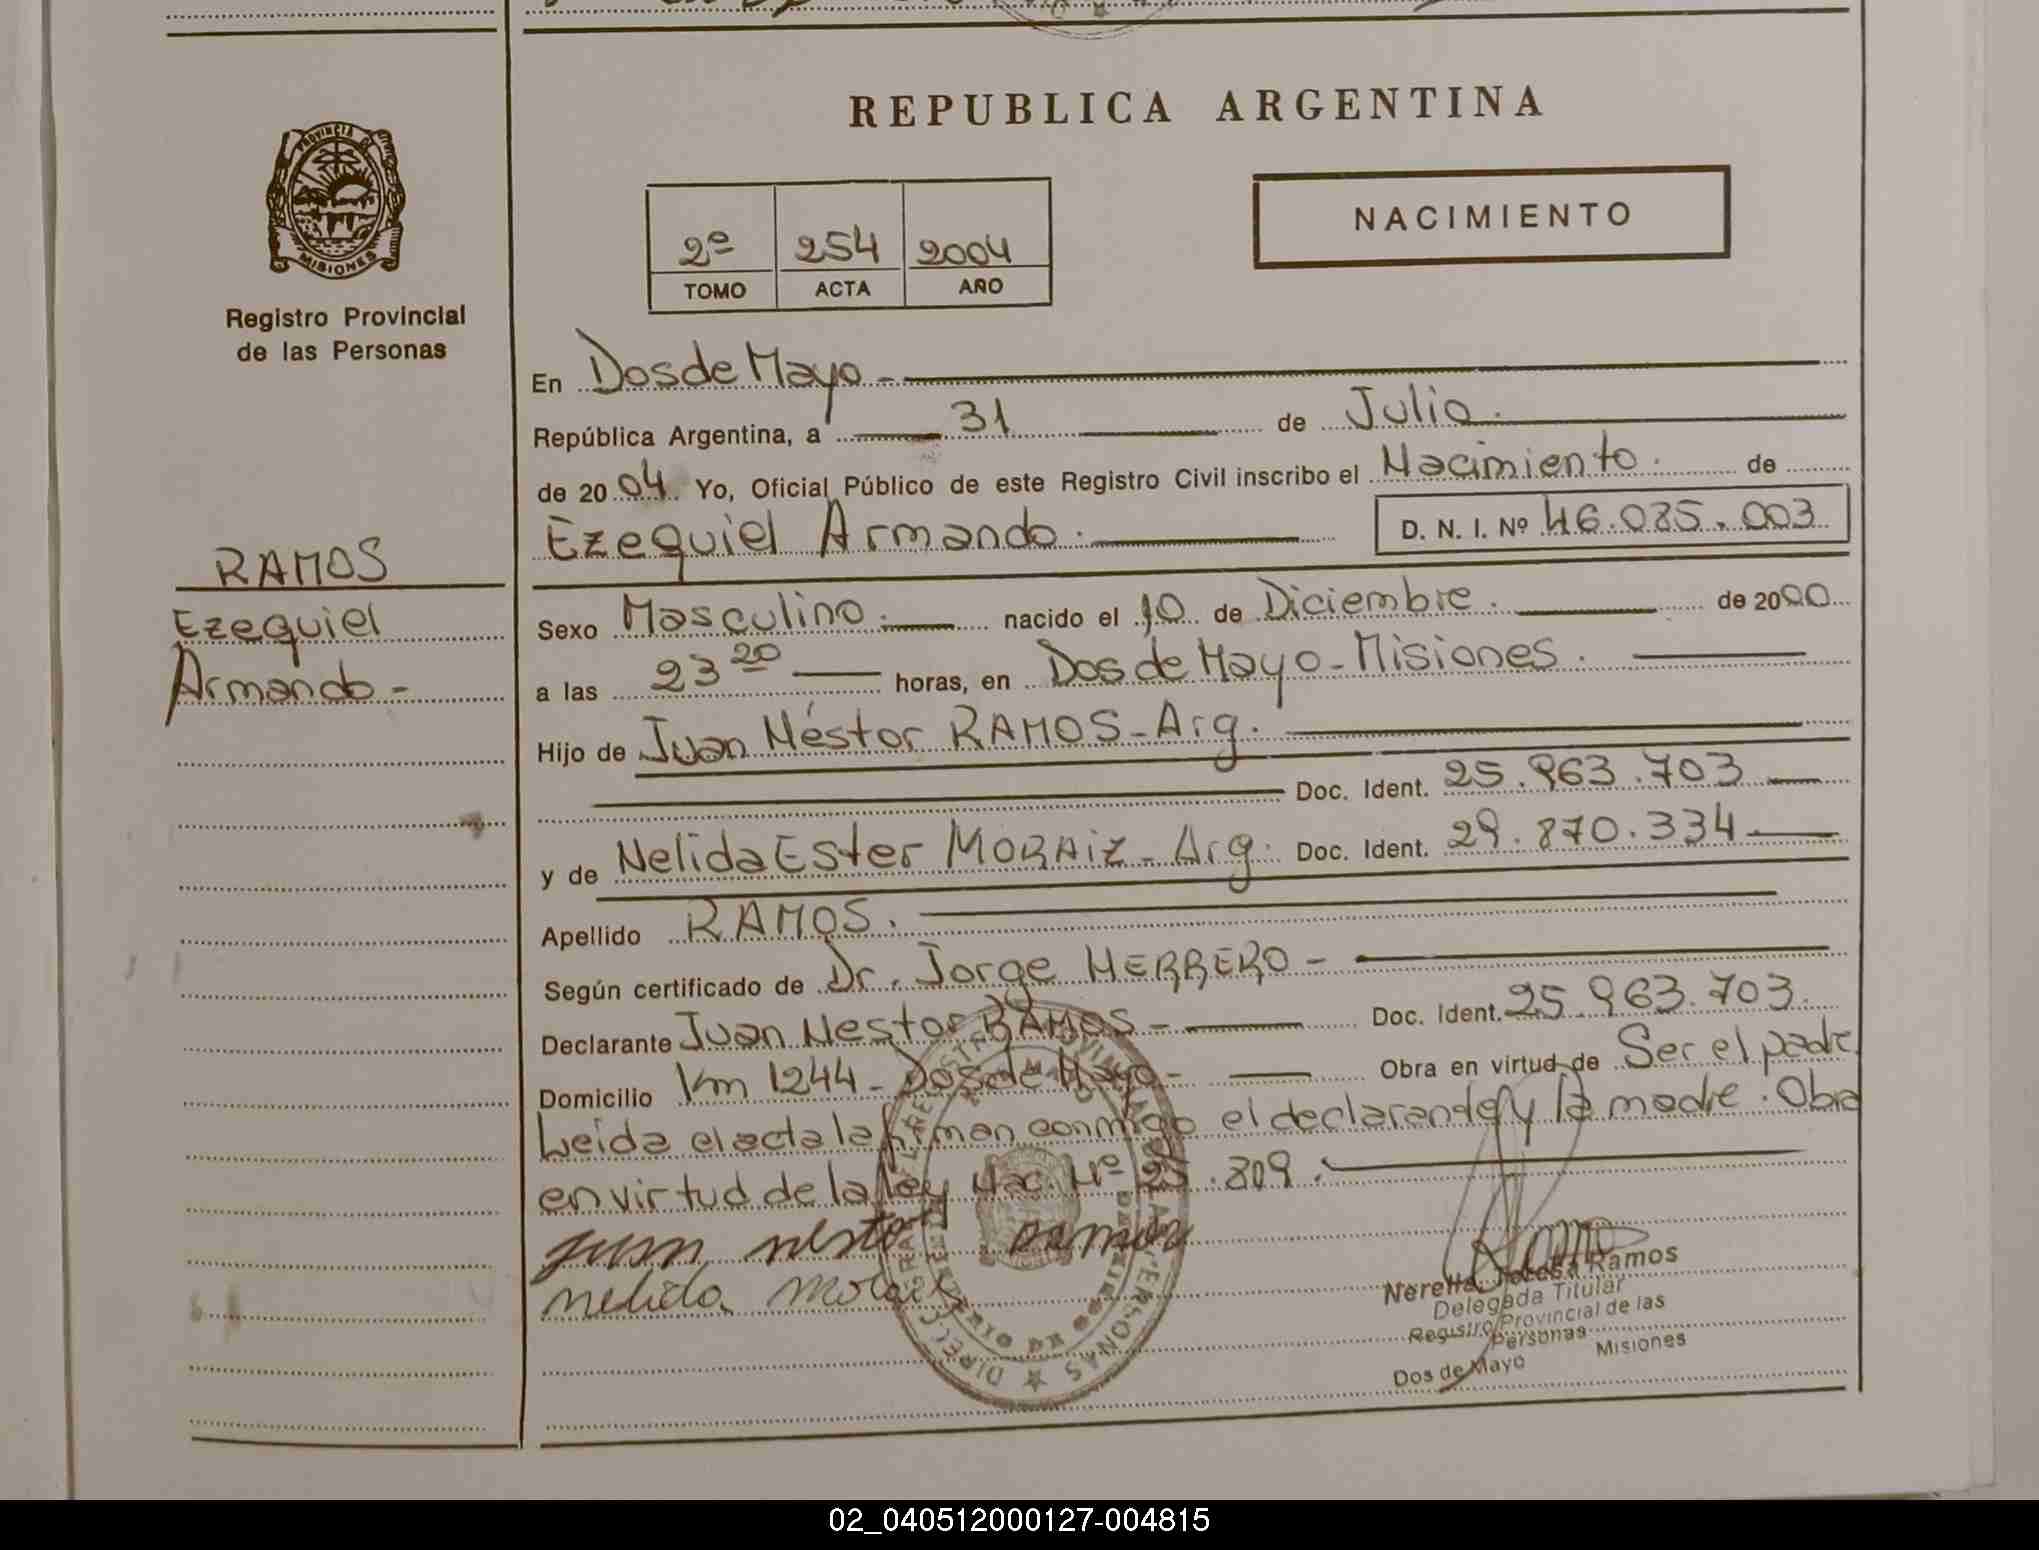 REPUBLICA ARGENTINA
PROVINCIA DE
MISIONES
Registro Provincial
de las Personas
2º 254 2004
TOMO ACTA AÑO
NACIMIENTO
En Dos de Mayo -
República Argentina, a 31 de Julio.
de 2004. Yo, Oficial Público de este Registro Civil inscribo el Nacimiento. de
Ezequiel Armando. D. N. I. Nº 46.085.003
RAMOS
Ezequiel
Armando -
Sexo Masculino. nacido el 10 de Diciembre. de 2000
a las 23 20 horas, en Dos de Mayo - Misiones.
Hijo de Juan Néstor RAMOS - Arg.
Doc. Ident. 25.963.703
y de Nelida Ester MORAIZ - Arg. Doc. Ident. 29.870.334
Apellido RAMOS.
Según certificado de Dr. Jorge HERRERO -
Declarante Juan Nestor RAMOS - Doc. Ident. 25.963.703.
Domicilio Km 1244 - Dos de Mayo - Obra en virtud de Ser el padre.
Leida el acta la firman conmigo el declarante y la madre. Obra
en virtud de la ley Nac. Nº 25.809.
juan nestor ramos
nelida moraiz
Teresa Ramos
Delegada Titular
Registro Provincial de las
Personas
Dos de Mayo Misiones
02_040512000127-004815